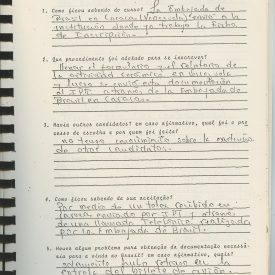 1. Como ficou sabendo do curso? La Embajada de
Brasil en Caracas (Venezuela) envió a la
institución donde yo trabajo la Ficha
de Inscripción.
2. Que procedimento foi adotado para se inscrever?
llenar el formulario y el relatorio de
la actividad cerámica en Venezuela
y luego se envió esta documentación
al IPT a través de la Embajada de
Brasil en Caracas.
3. Havia outros candidatos? em caso afirmativo, qual foi o pro-
cesso de escolha e por quem foi feito?
no tengo conocimiento sobre la
de otros candidatos.
4. Como ficou sabendo de sua aceitação?
Por medio de un telex recibido en
enviado por IPT y a través
de una llamada telefónica realizada
por la Embajada de Brasil.
5. Houve algum problema para obtenção da documentação necessá-
ria para a vinda ao Brasil? em caso afirmativo, quais?
solamente hubo retraso en la
entrega del billete de avión.